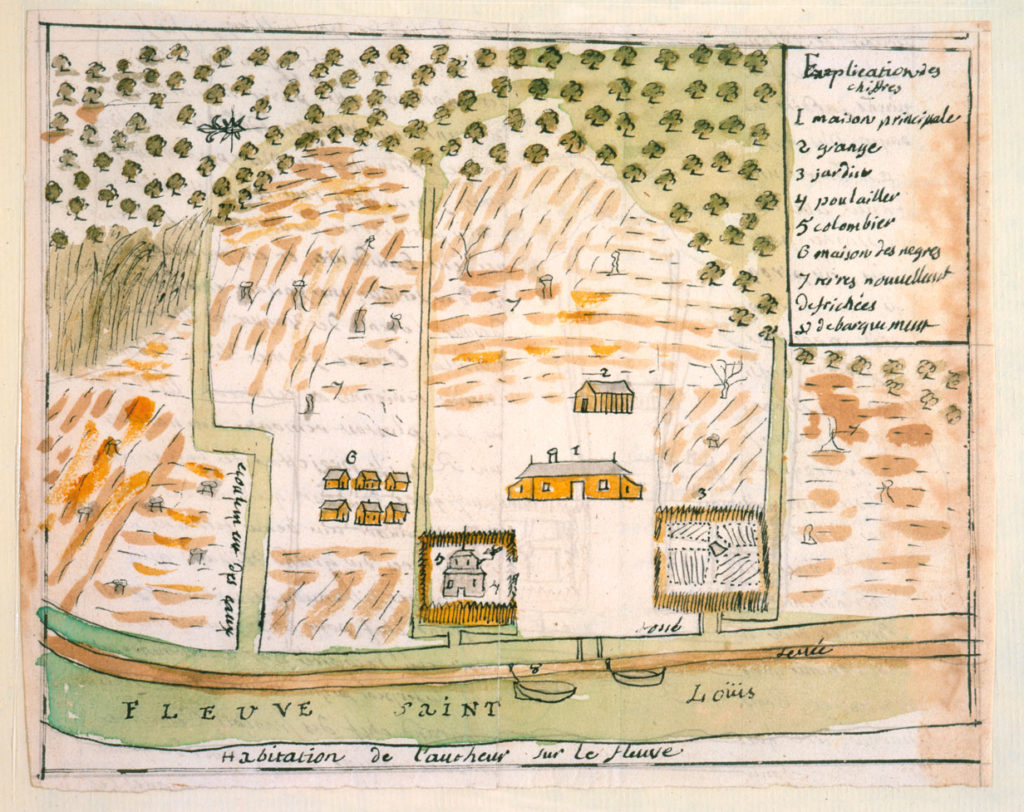 Explication des
chiffres
1 maison principale
2 grange
3 jardin
4 poulailler
5 colombier
6 maison des negres
7 terres nouvellemt
defrichées
8 debarquement
7
2
7
6
1
3
7
5
4
ecoulem des eaux
fossé
levée
8
FLEUVE SAINT Loüis
Habitation de l'autheur sur le fleuve